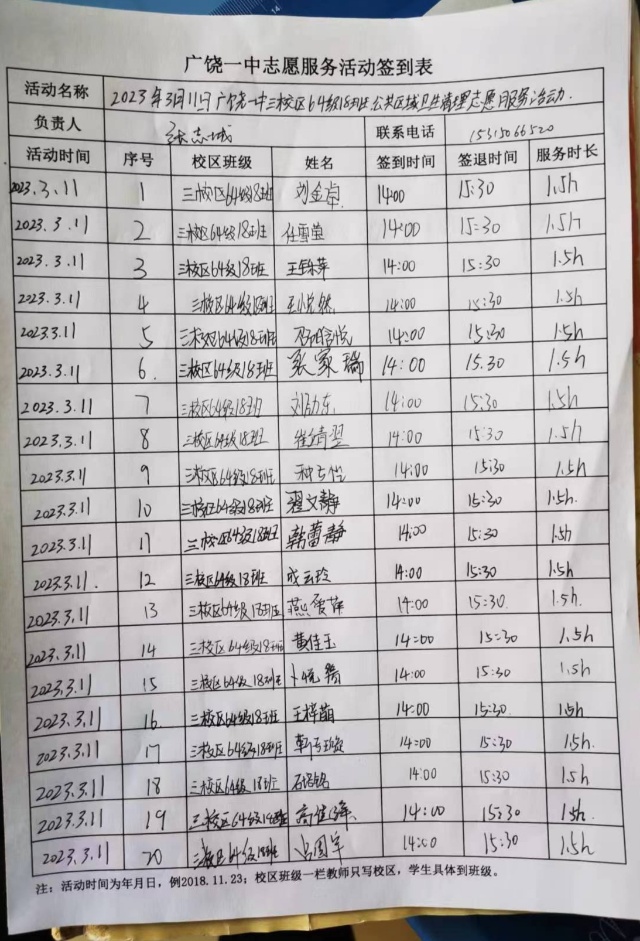 广饶一中志愿服务活动签到表
活动名称 2023年3月11日广饶一中三校区64级18班公共区域卫生清理志愿服务活动.
负责人 张志城 联系电话 15315066520
活动时间 序号 校区班级 姓名 签到时间 签退时间 服务时长
2023.3.11 1 三校区64级18班 刘金卓 14:00 15:30 1.5h
2023.3.11 2 三校区64级18班 任雪莹 14:00 15:30 1.5h
2023.3.11 3 三校区64级18班 14:00 15:30 1.5h
2023.3.11 4 三校区64级18班 14:00 15:30 1.5h
2023.3.11 5 三校区64级18班 14:00 15:30 1.5h
2023.3.11 6. 三校区64级18班 张家瑞 14:00 15.30 1.5h
2023.3.11 7 三校区64级18班 14:00 15:30 1.5h
2023.3.11 8 三校区64级18班 崔靖翌 14:00 15:30 1.5h
2023.3.11 9 三校区64级18班 14:00 15:30 1.5h
2023.3.11 10 三校区64级18班 翟文静 14:00 15:30 1.5h
2023.3.11 11 三校区64级18班 韩蕾静 14:00 15:30 1.5h
2023.3.11. 12 三校区64级18班 成云玲 14:00 15:30 1.5h
2023.3.11 13 三校区64级18班 14:00 15:30. 1.5h.
2023.3.11 14 三校区64级18班 黄佳玉 14:00 15:30 1.5h
2023.3.11 15 三校区64级18班 14:00 15:30 1.5h
2023.3.11 16 三校区64级18班 王梓萌 14:00 15:30. 1.5h
2023.3.11 17 三校区64级18班 14:00 15:30 1.5h.
2023.3.11 18 三校区64级18班 14:00 15:30 1.5h
2023.3.11 19 三校区64级18班 14:00 15:30 1.5h.
2023.3.11 20 三校区64级18班 14:00 15:30 1.5h
注：活动时间为年月日，例2018.11.23；校区班级一栏教师只写校区，学生具体到班级。